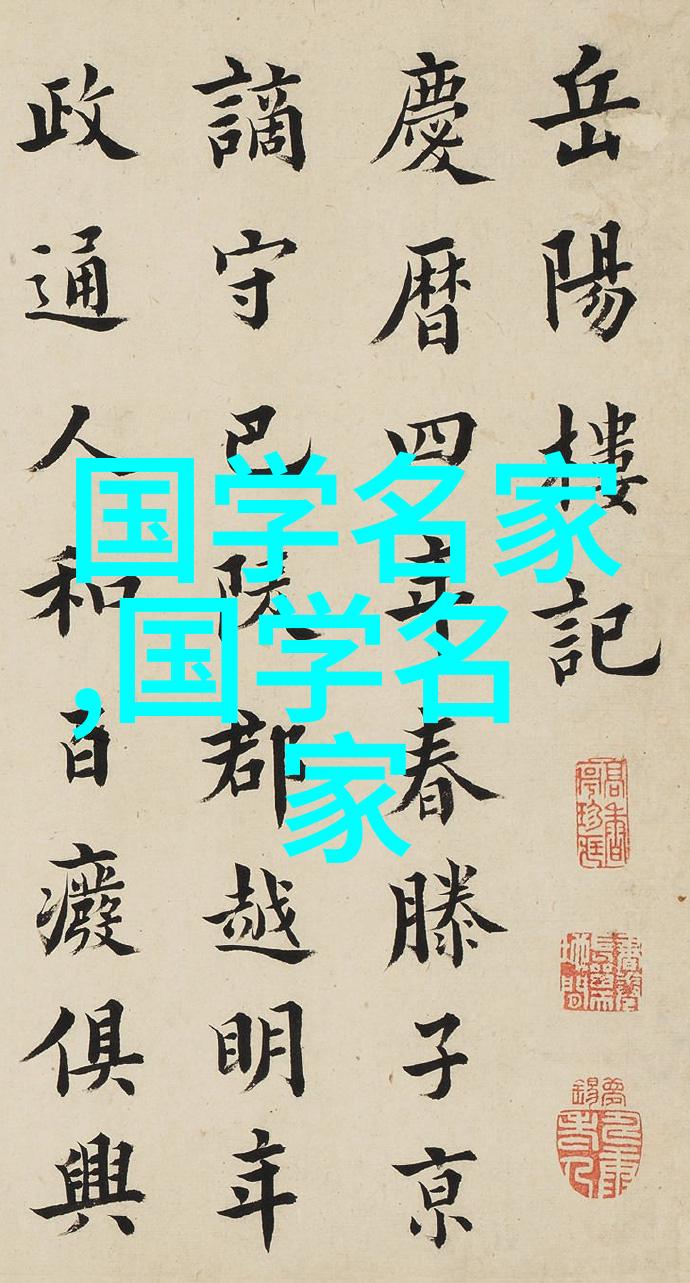 岳陽樓記
慶曆四年春滕子京
謫守巴陵郡越明年
政通人和百癈俱興
国学名家
,国学名
家